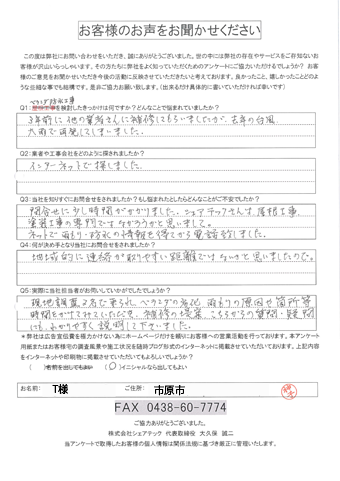 お客様のお声をお聞かせください
この度は弊社にお問い合わせをいただき、誠にありがとうございました。世の中には弊社の存在やサービスをご存知ないお
客様が沢山いらっしゃいます。その方たちに弊社をよく知っていただくためのアンケートにご協力いただけるでしょうか?お客
様のご意見をお聞かせいただき今後の活動に反映させていただきたいと考えております。良かったこと、嬉しかったことどのよ
うな些細な事でも結構です。是非ご協力お願い致します。(出来るだけ具体的に書いていただければ幸いです)
ベランダ防水工事
Q1:屋根工事を検討したきっかけは何ですか?どんなことで悩まれていましたか?
3年前に他の業者さんに補修してもらいましたが、去年の台風、
大雨で再発してしまいました。
Q2:業者や工事会社をどのように探されましたか?
インターネットで探しました。
Q3:当社を知りすぐにお問合せをされましたか?もし悩まれたとしたらどんなことがご不安でしたか?
問合せに少し時間がかかりました。シェアテックさんは、屋根工事、
塗装工事の専門ではなかろうかと思いまして。
ネットで雨もり・防水の情報を得てから電話致しました。
Q4:何が決め手となり当社にお問合せをされましたか?
地域的に連絡が取りやすい距離ではないかと思いましたので。
Q5:実際に当社担当者がお伺いしていかがでしたか?
現地調査に2名で来られ、ベランダの劣化、雨もりの原因や箇所等
時間をかけてみていただき、補修の提案、こちらからの質問・疑問
にも、わかりやすく説明して下さいました。
*弊社は広告宣伝費を極力かけない為にホームページだけを頼りにお客様への営業活動を行っております。本アンケート
用紙またはお客様宅の調査風景や施工状況を随時ブログ形式でインターネットに掲載させていただいております。上記内容
をインターネットや印刷物に掲載させていただいてもよろしいでしょうか?
( )名前を出してもok (○)イニシャルなら出してもよい
お名前: T様 ご住所: 市原市
FAX 0438-60-7774
ご協力ありがとうございました。
株式会社シェアテック 代表取締役 大久保 誠二
当アンケートで取得したお客様の個人情報は関係法規に基づき厳正に管理いたします。